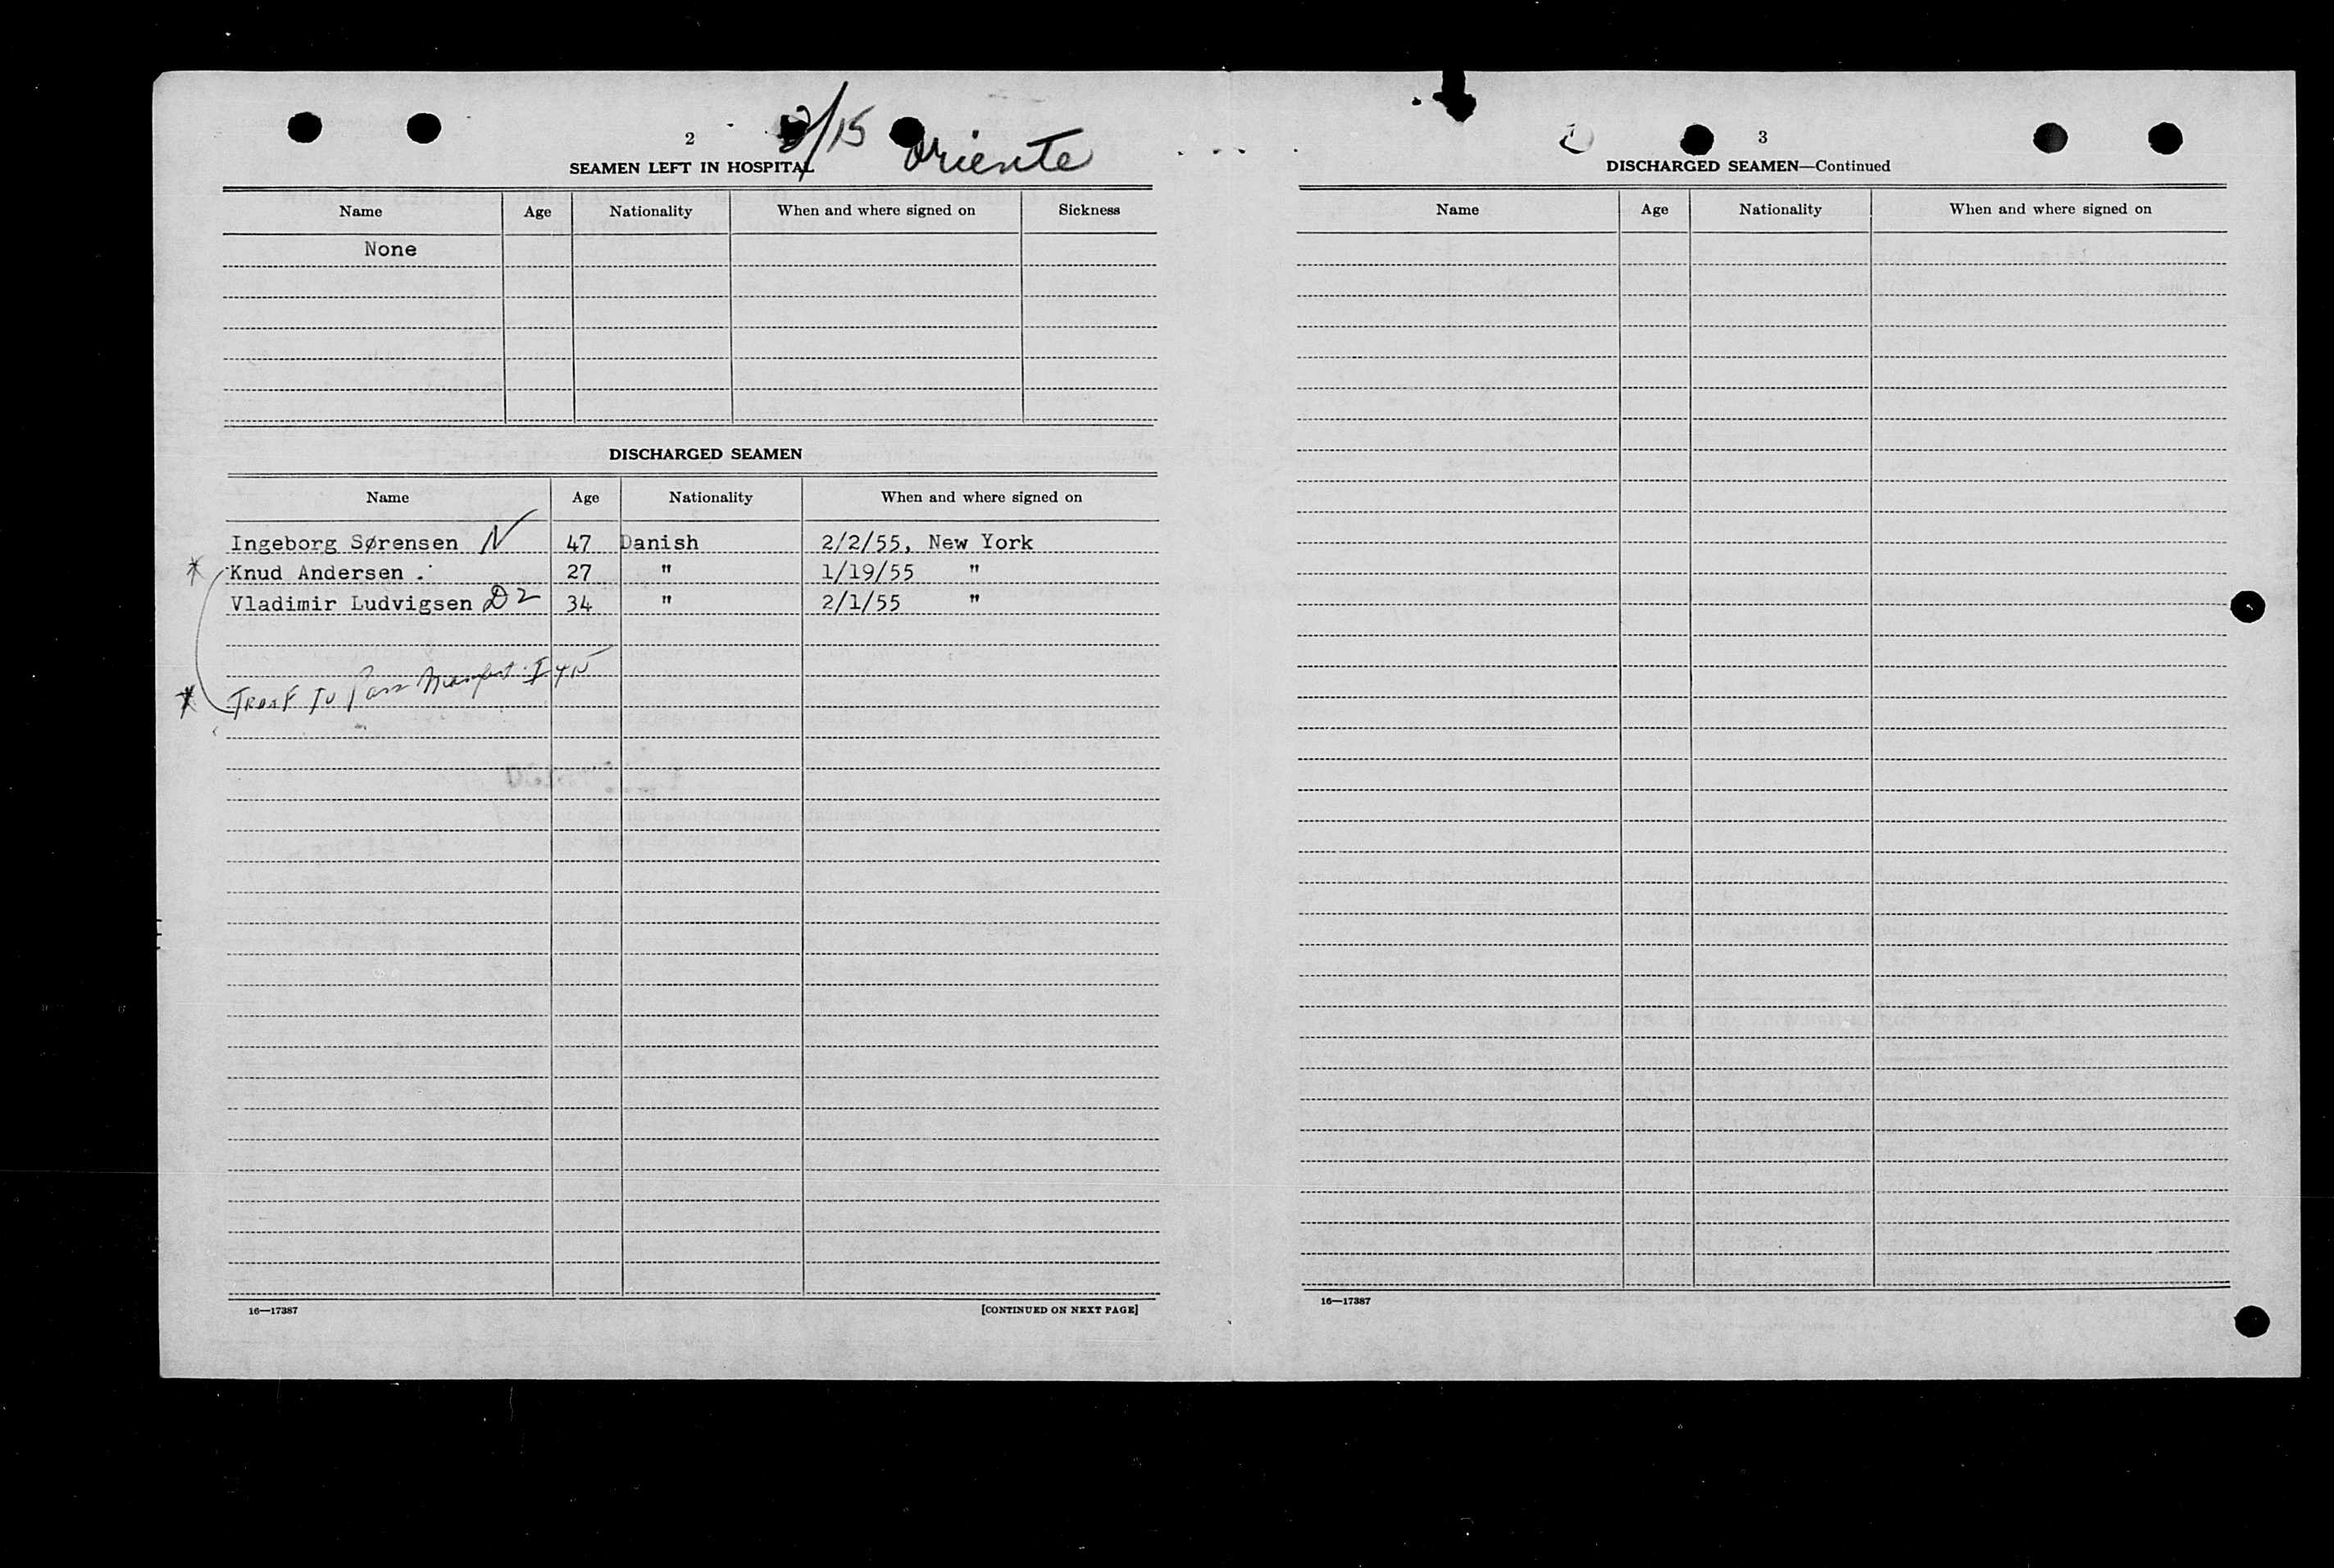 2
2/15 Oriente
SEAMEN LEFT IN HOSPITAL
Name Age Nationality When and where signed on Sickness
None
DISCHARGED SEAMEN
Name Age Nationality When and where signed on
Ingeborg Sørensen N 47 Danish 2/2/55, New York
* Knud Andersen . 27 " 1/19/55 "
Vladimir Ludvigsen D2 34 " 2/1/55 "
* Transf To Pass Manifest I 415
16—17387 [CONTINUED ON NEXT PAGE]
3
DISCHARGED SEAMEN—Continued
Name Age Nationality When and where signed on
16—17387